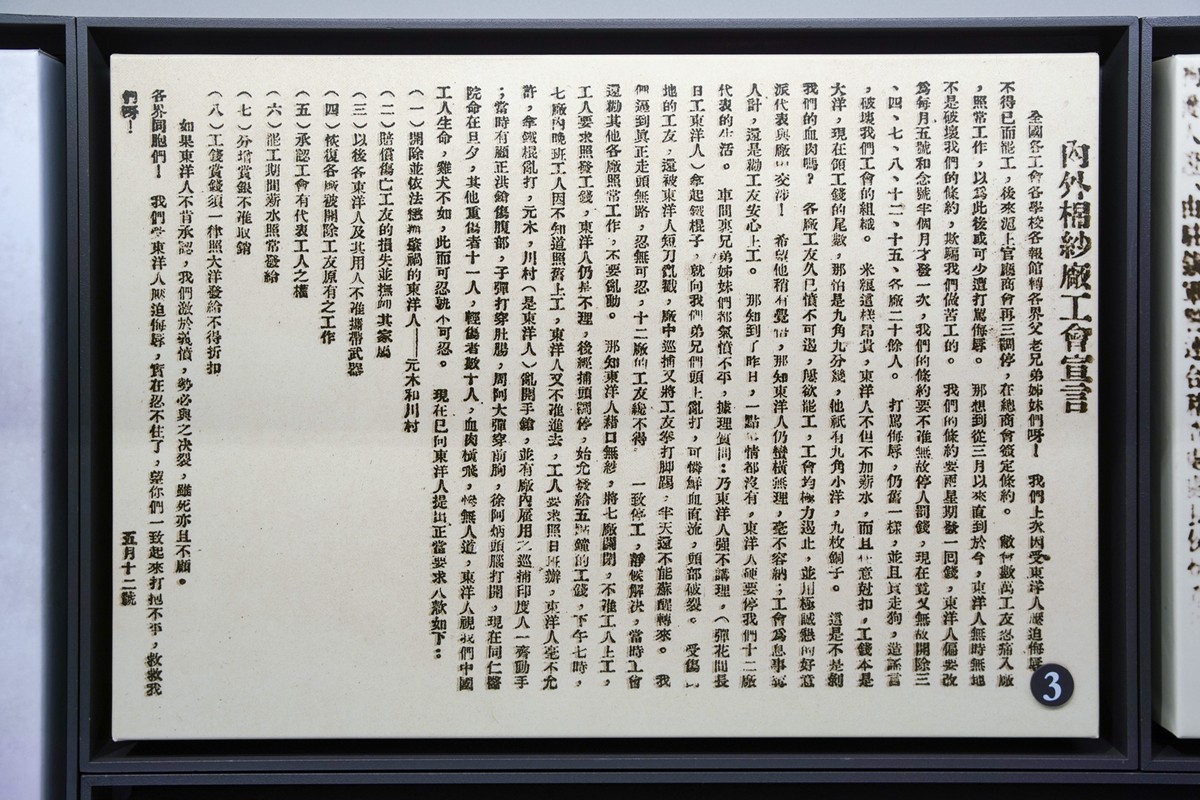 內外棉紗廠工會宣言
全國各工會各學校各報館轉各界父老兄弟姊妹們呀！ 我們上次因受東洋人壓迫侮辱
不得已而罷工，後來滬上官廳商會再三調停，在總商會簽定條約。 敝廠數萬工友忍痛入廠
，照常工作，以爲此後或可少遭打罵侮辱。 那想到從三月以來直到於今，東洋人無時無地
不是破壞我們的條約，欺騙我們做苦工的。 我們的條約要兩星期發一回錢，東洋人偏要改
爲每月五號和念號半個月才發一次，我們的條約要不准無故停人罰錢，現在竟又無故開除三
、四、七、八、十二、十五、各廠二十餘人。 打罵侮辱，仍舊一樣，並且買走狗，造謠言
，破壞我們工會的組織。 米糧這樣昂貴，東洋人不但不加薪水，而且任意尅扣，工錢本是
大洋，現在領工錢的尾數，那怕是九角九分幾，他祇有九角小洋，九枚銅子。 這是不是剝
我們的血肉嗎？ 各廠工友久已憤不可遏，急欲罷工，工會均極力遏止，並用極誠懇的好意
派代表與廠中交涉！ 希望他稍有覺悟，那知東洋人仍蠻橫無理，毫不容納；工會爲息事寧
人計，還是勸工友安心上工。 那知到了昨日，一點事情都沒有，東洋人硬要停我們十二廠
代表的生活。 車間裏兄弟姊妹們都氣憤不平，據理質問：乃東洋人強不講理，（彈花間長
日工東洋人）拿起鐵棍子，就向我們弟兄們頭上亂打，可憐鮮血直流，頭部破裂。 受傷
地的工友，還被東洋人短刀亂戳，廠中巡捕又將工友拳打脚踢，半天還不能蘇醒轉來。 我
們逼到眞正走頭無路，忍無可忍，十二廠的工友纔不得 一致停工，靜候解決，當時工會
還勸其他各廠照常工作，不要亂動。 那知東洋人藉口無紗，將七廠關閉，不准工人上工，
工人要求照發工錢，東洋人仍是不理，後經捕頭調停，始允發給五點鐘的工錢，下午七時，
七廠內晚班工人因不知道照舊上工，東洋人又不准進去，工人要求照日班辦，東洋人毫不允
許，拿鐵棍亂打，元木，川村（是東洋人）亂開手鎗，並有廠內雇用之巡捕印度人一齊動手
；當時有顧正洪鎗傷腹部，子彈打穿肚腸，周阿大彈穿前胸，徐阿炳頭腦打開，現在同仁醫
院命在旦夕，其他重傷者十一人，輕傷者數十人，血肉橫飛，慘無人道，東洋人視我們中國
工人生命，雞犬不如，此而可忍孰不可忍。 現在已向東洋人提出正當要求八款如下：
（一）開除並依法懲辦肇禍的東洋人——元木和川村
（二）賠償傷亡工友的損失並撫卹其家屬
（三）以後各東洋人及其用人不准攜帶武器
（四）恢復各廠被開除工友原有之工作
（五）承認工會有代表工人之權
（六）罷工期間薪水照常發給
（七）分增賞銀不准取銷
（八）工錢賞錢須一律照大洋發給不得折扣
如果東洋人不肯承認，我們激於義憤，勢必與之決裂，雖死亦且不顧。
各界同胞們！ 我們受東洋人壓迫侮辱，實在忍不住了，望你們一致起來打抱不平，救救我
們呀！
五月十二號
3